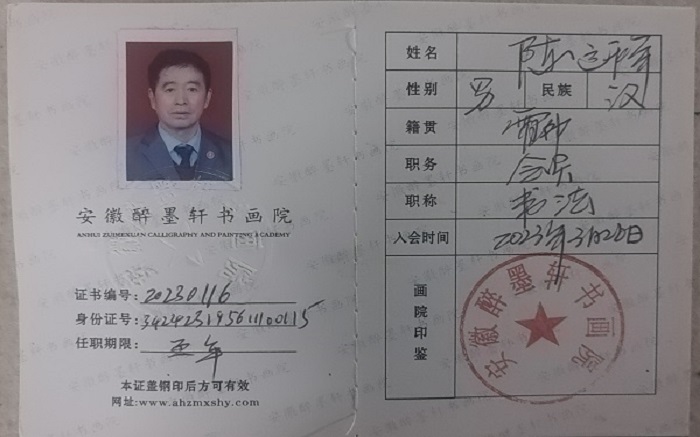 安徽醉墨轩书画院
ANHUI ZUIMOXUAN CALLIGRAPHY AND PAINTING ACADEMY
证书编号: 20230116
身份证号:
任职期限: 五年
本证盖钢印后方可有效
网址:www.ahzmxshy.com
姓名 陈
性别 男 民族 汉
籍贯
职务 会员
职称 书法
入会时间 2023年3月28日
画院印鉴
安徽醉墨轩书画院